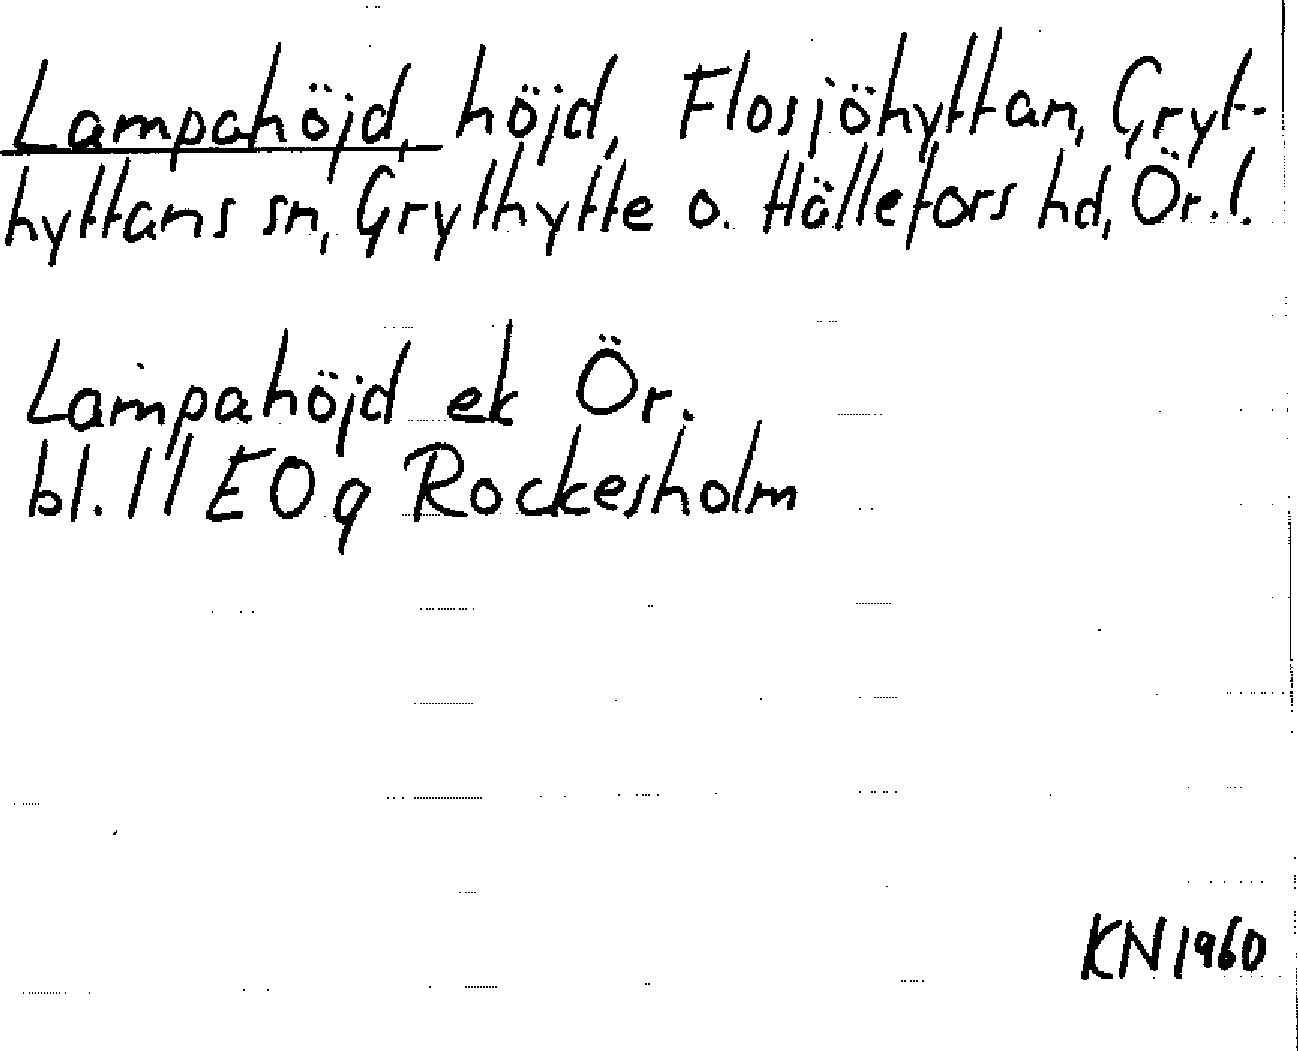 Lampahöjd, höjd, Flosjöhyttan, Gryt-
hyttans sn, Grythytte o. Hällefors hd, Ör. l.
Lampahöjd ek Ör.
bl. 11 E0g Rockesholm
KN 1960